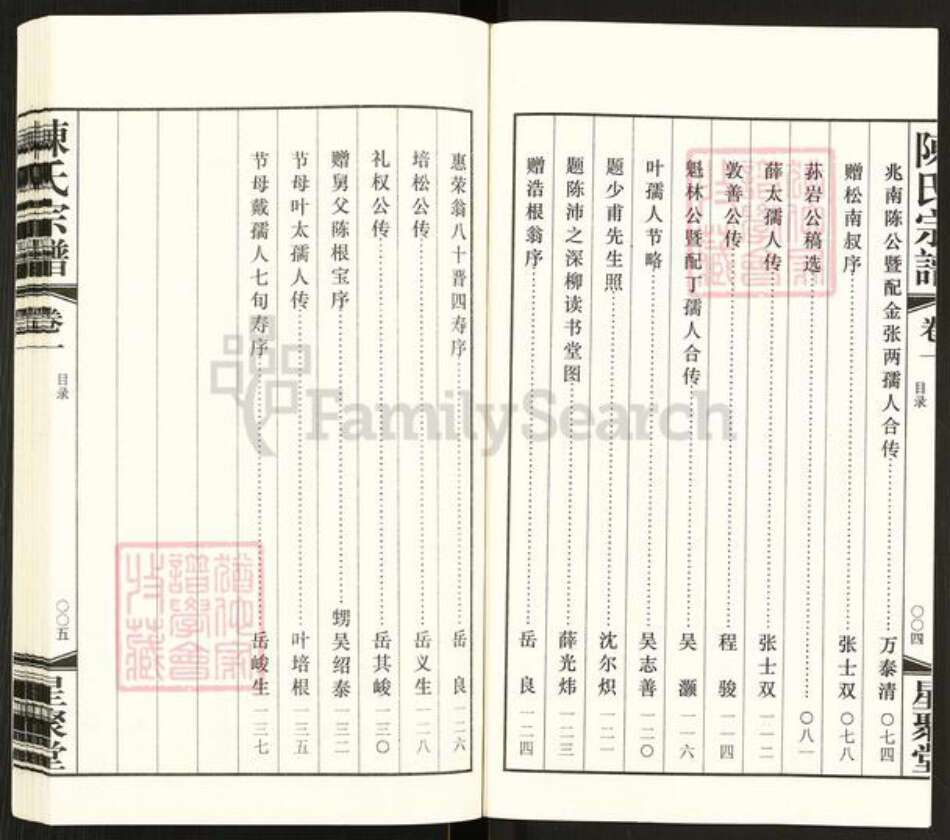 陳氏宗譜 卷一 目录 〇〇四 星聚堂
兆南陈公暨配金张两孺人合传……万泰清 〇七四
赠松南叔序……张士双 〇七八
荪岩公稿选……〇八一
薛太孺人传……张士双 一一二
敦善公传……程 骏 一一四
魁林公暨配丁孺人合传……吴 灏 一一六
叶孺人节略……吴志善 一二〇
题少甫先生照……沈尔炽 一二一
题陈沛之深柳读书堂图……薛光炜 一二三
赠浩根翁序……岳 良 一二四
惠荣翁八十晋四寿序……岳 良 一二六
培松公传……岳义生 一二八
礼权公传……岳其峻 一三〇
赠舅父陈根宝序……甥吴绍泰 一三二
节母叶太孺人传……叶培根 一三五
节母戴孺人七旬寿序……岳峻生 一三七
陳氏宗譜 卷一 目录 〇〇五 星聚堂
FamilySearch